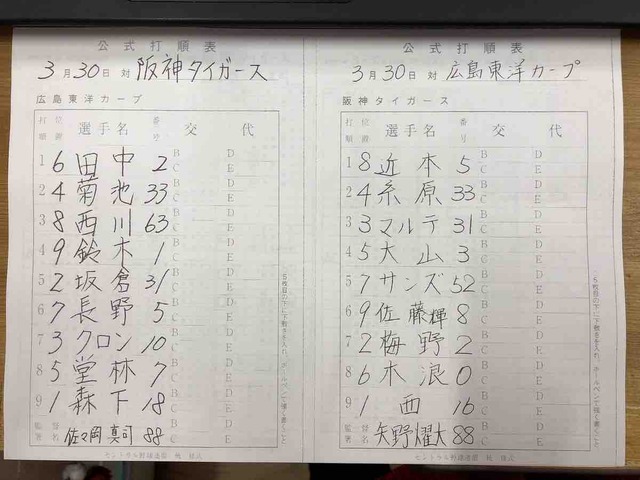 公式打順表
3月30日 対 阪神タイガース
広島東洋カープ
打順 位置 選手名 番号 交代
1 6 田中 2 B C D E
2 4 菊池 33 B C D E
3 8 西川 63 B C D E
4 9 鈴木 1 B C D E
5 2 坂倉 31 B C D E
6 7 長野 5 B C D E
7 3 クロン 10 B C D E
8 5 堂林 7 B C D E
9 1 森下 18 B C D E
監督 署名 佐々岡真司 88 B C D E
セントラル野球連盟
公式打順表
3月30日 対 広島東洋カープ
阪神タイガース
打順 位置 選手名 番号 交代
1 8 近本 5 B C D E
2 4 糸原 33 B C D E
3 3 マルテ 31 B C D E
4 5 大山 3 B C D E
5 7 サンズ 52 B C D E
6 9 佐藤輝 8 B C D E
7 2 梅野 2 B C D E
8 6 木浪 0 B C D E
9 1 西 16 B C D E
監督 署名 矢野燿大 88 B C D E
セントラル野球連盟